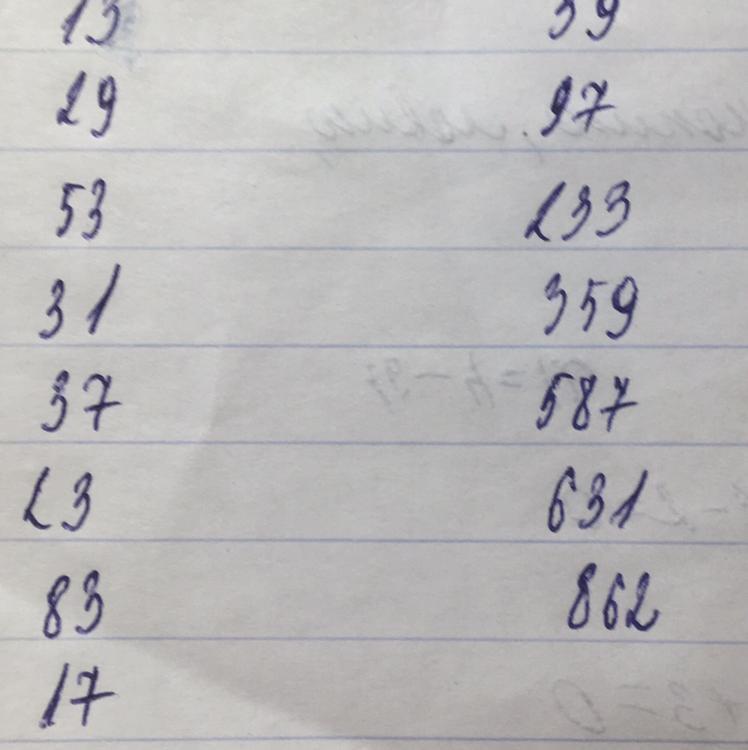 13
29 97
53 233
31 359
37 587
23 631
83 862
17